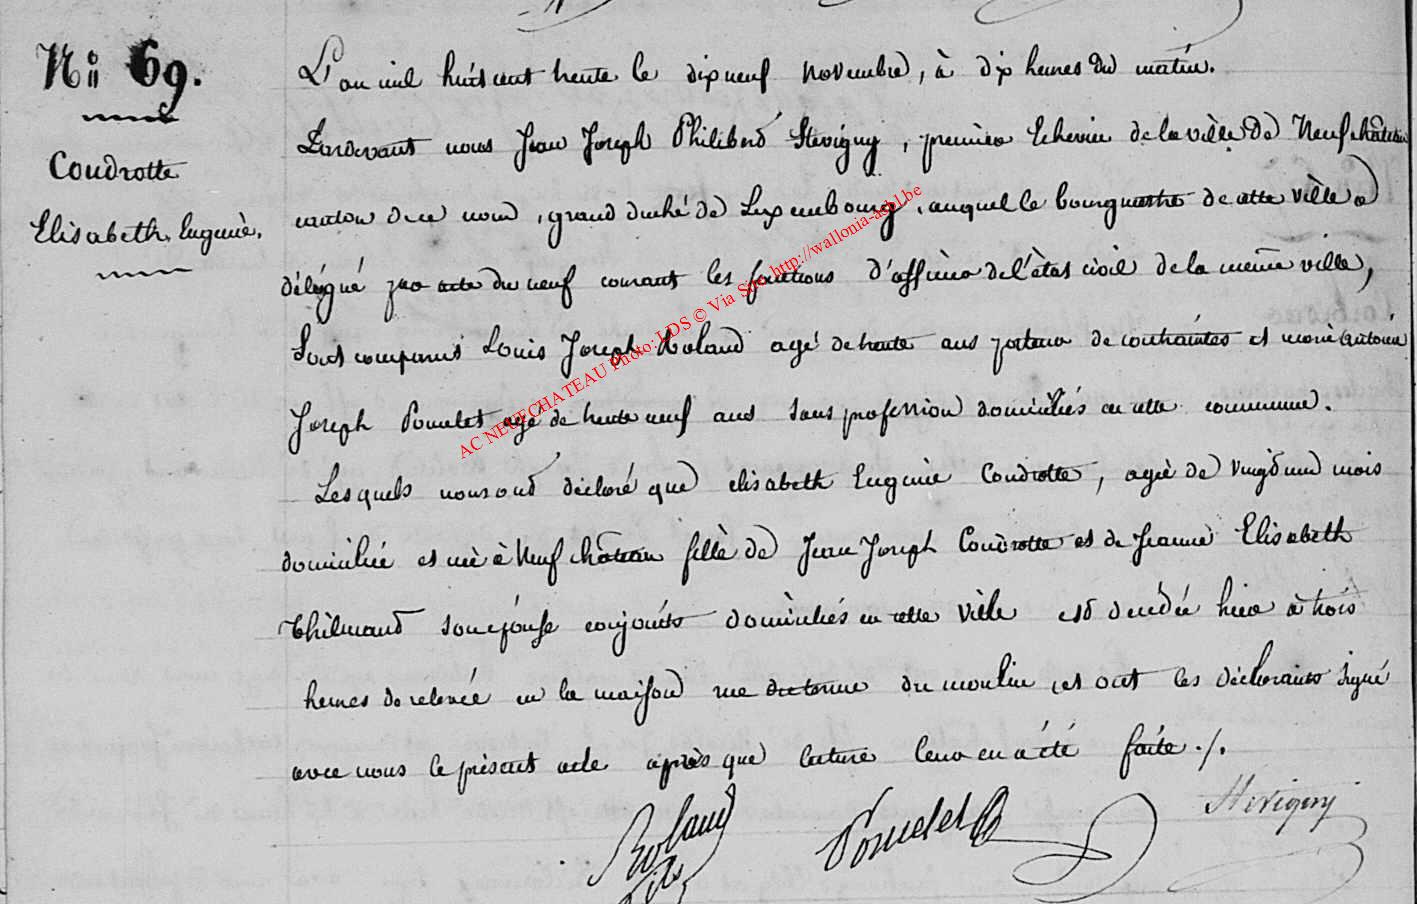 N° 69.
Coudrotte
Elisabeth Eugenie.
L'an mil huit cent trente le dix neuf novembre, à dix heures du matin.
Pardevant nous Jean Joseph Philibert Stevigny, premier Echevin de la ville de Neufchâteau
canton de ce nom, grand duché de Luxembourg, auquel le bourgmestre de cette ville a
délégué par acte du neuf courant les fonctions d'officier de l'état civil de la meme ville,
Sont comparus Louis Joseph Roland agé de trente ans porteur de contraintes et
Joseph Poncelet agé de trente neuf ans sans profession domiciliés en cette commune.
Lesquels nous ont déclaré que elisabeth Eugenie Coudrotte, agée de vingt un mois
domiciliée et née à Neufchâteau fille de Jean Joseph Coudrotte et de Jeanne Elisabeth
Thilmand son épouse conjoints domiciliés en cette ville est decedée hier à trois
heures de relevée en la maison rue du moulin et ont les déclarants signé
avec nous le présent acte après que lecture leur en a été faite ./.
Roland Poncelet Stevigny
AC NEUFCHATEAU Photo: LDS © Via Spo http://wallonia-asbl.be